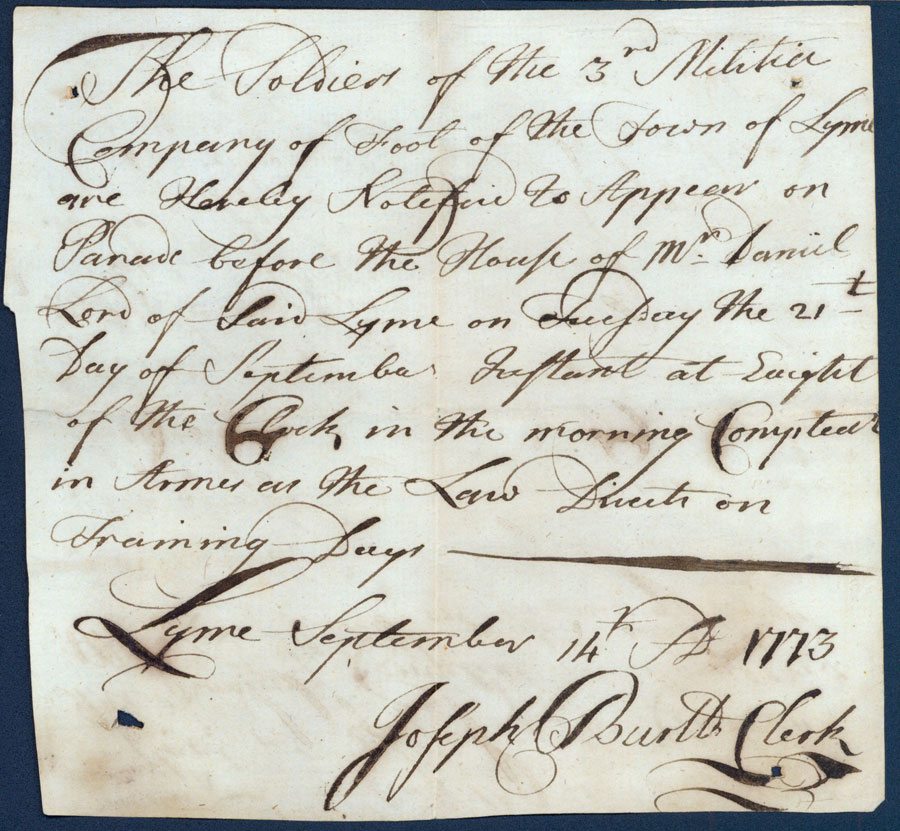 The Soldiers of the 3rd Militia
Company of Foot of the Town of Lyme
are Hereby Notified to Appear on
Parade before the House of Mr. Daniel
Lord of Said Lyme on Tuesday the 21t
Day of September Instant at Eaight
of the Clock in the morning Compleat
in Armes as the Law Directs on
Training Days
Lyme September 14th AD 1773
Joseph Clerk